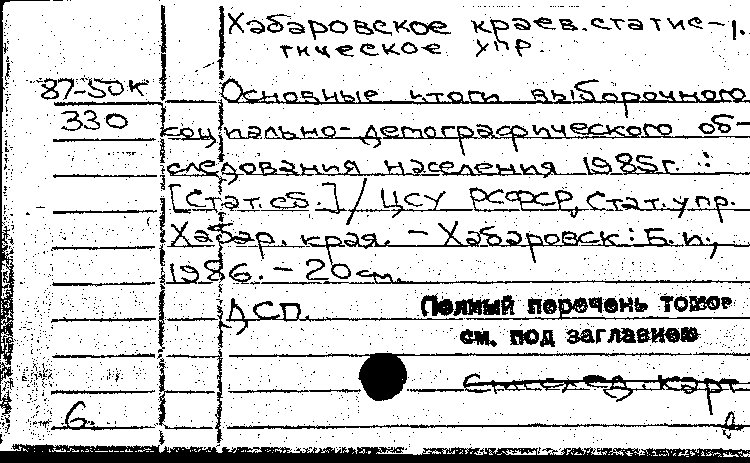 Хабаровское краев. статис-
тическое упр.
87-50К Основные итоги выборочного
330 социально-демографического об-
следования населения 1985г. :
[Стат. сб.] / ЦСУ РСФСР, Стат. упр.
Хабар. края. - Хабаровск: Б. и.,
1986. - 20 см.
ДСП. Полный перечень томов
см. под заглавием
карт
6.